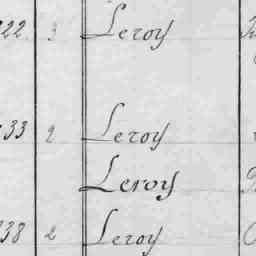 22 3 Leroy
33 2 Leroy
Leroy
38 2 Leroy